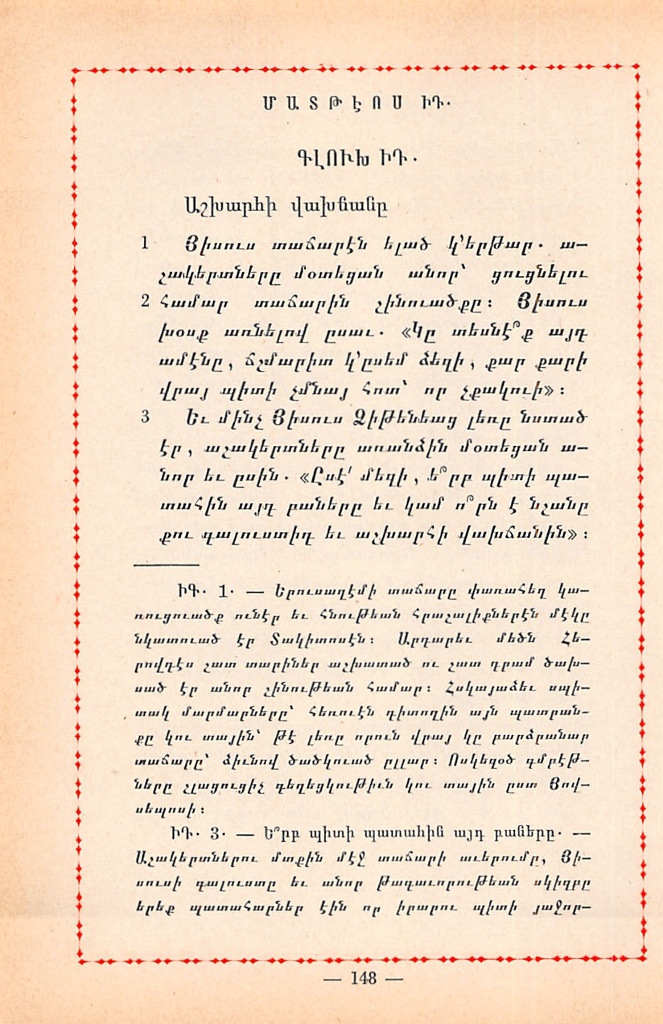 ՄԱՏԹԷՈՍ ԻԴ.
ԳԼՈՒԽ ԻԴ.
Աշխարհի վախճանը
1 Յիսուս տաճարէն ելած կ՚երթար. ա-
շակերտները մօտեցան անոր՝ ցուցնելու
2 համար տաճարին շինուածքը։ Յիսուս
խօսք առնելով ըսաւ. «Կը տեսնէ՞ք այդ
ամէնը, ճշմարիտ կ՚ըսեմ ձեզի, քար քարի
վրայ պիտի չմնայ հոտ՝ որ չքակուի»։
3 Եւ մինչ Յիսուս Ձիթենեաց լեռը նստած
էր, աշակերտները առանձին մօտեցան ա-
նոր եւ ըսին. «Ըսէ՛ մեզի, ե՞րբ պիտի պա-
տահին այդ բաները եւ կամ ո՞րն է նշանը
քու գալուստիդ եւ աշխարհի վախճանին»։
ԻԳ. 1. — Երուսաղէմի տաճարը փառահեղ կա-
ռուցուածք ունէր եւ հնութեան հրաշալիքներէն մէկը
նկատուած էր Տակիտոսէն։ Արդարեւ մեծն Հե-
րովդէս շատ տարիներ աշխատած ու շատ դրամ ծախ-
սած էր անոր շինութեան համար։ Հսկայաձեւ սպի-
տակ մարմարները՝ հեռուէն դիտողին այն պատրան-
քը կու տային՝ թէ լեռը որուն վրայ կը բարձրանար
տաճարը՝ ձիւնով ծածկուած ըլլար։ Ոսկեզօծ գմբէթ-
ները շլացուցիչ գեղեցկութիւն կու տային ըստ Յով-
սեպոսի։
ԻԴ. 3. — Ե՞րբ պիտի պատահին այդ բաները. —
Աշակերտներու մտքին մէջ տաճարի աւերումը, Յի-
սուսի գալուստը եւ անոր թագաւորութեան սկիզբը
երեք պատահարներ էին որ իրարու պիտի յաջոր-
— 148 —